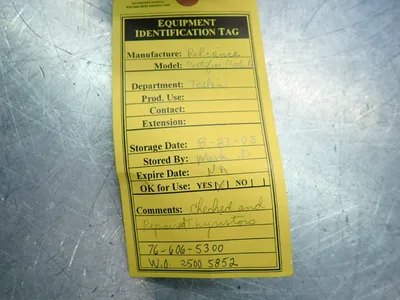 EQUIPMENT
IDENTIFICATION TAG
Manufacture: Reliance
Model: Rectifier Module
Department:
Prod. Use:
Contact:
Extension:
Storage Date: 8-23-05
Stored By: Mark D.
Expire Date: NA
OK for Use: YES [X] NO [ ]
Comments: Checked and
Repaired Thyristors
76-606-5300
W.O. 2500 5852